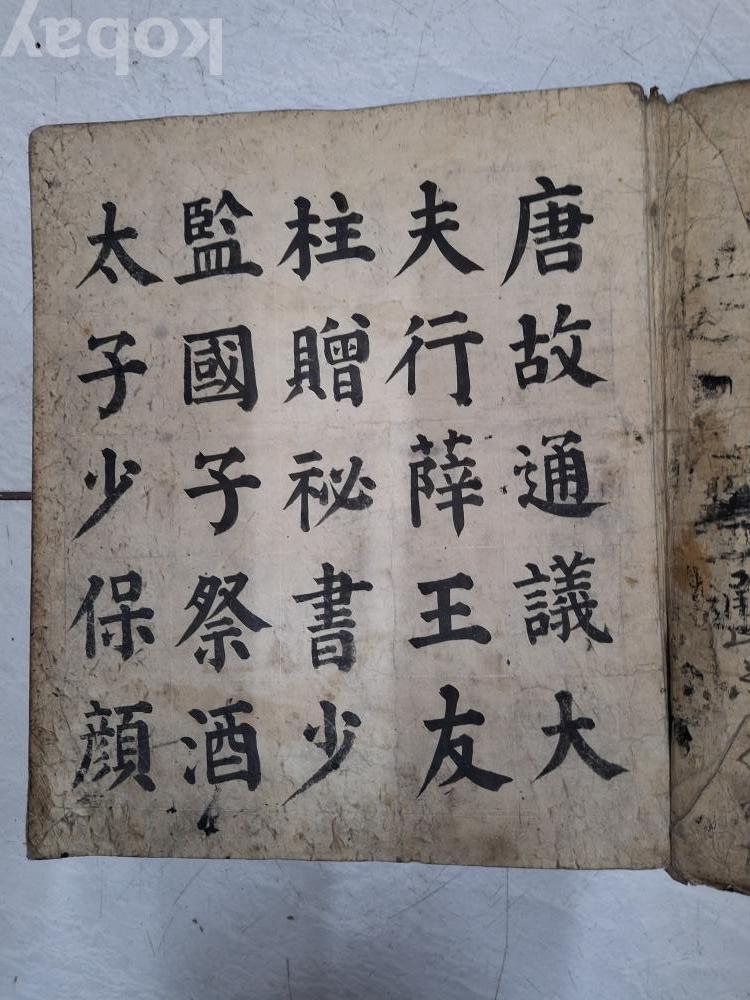 唐故通議大
夫行薛王友
柱贈祕書少
監國子祭酒
太子少保顔
kobay